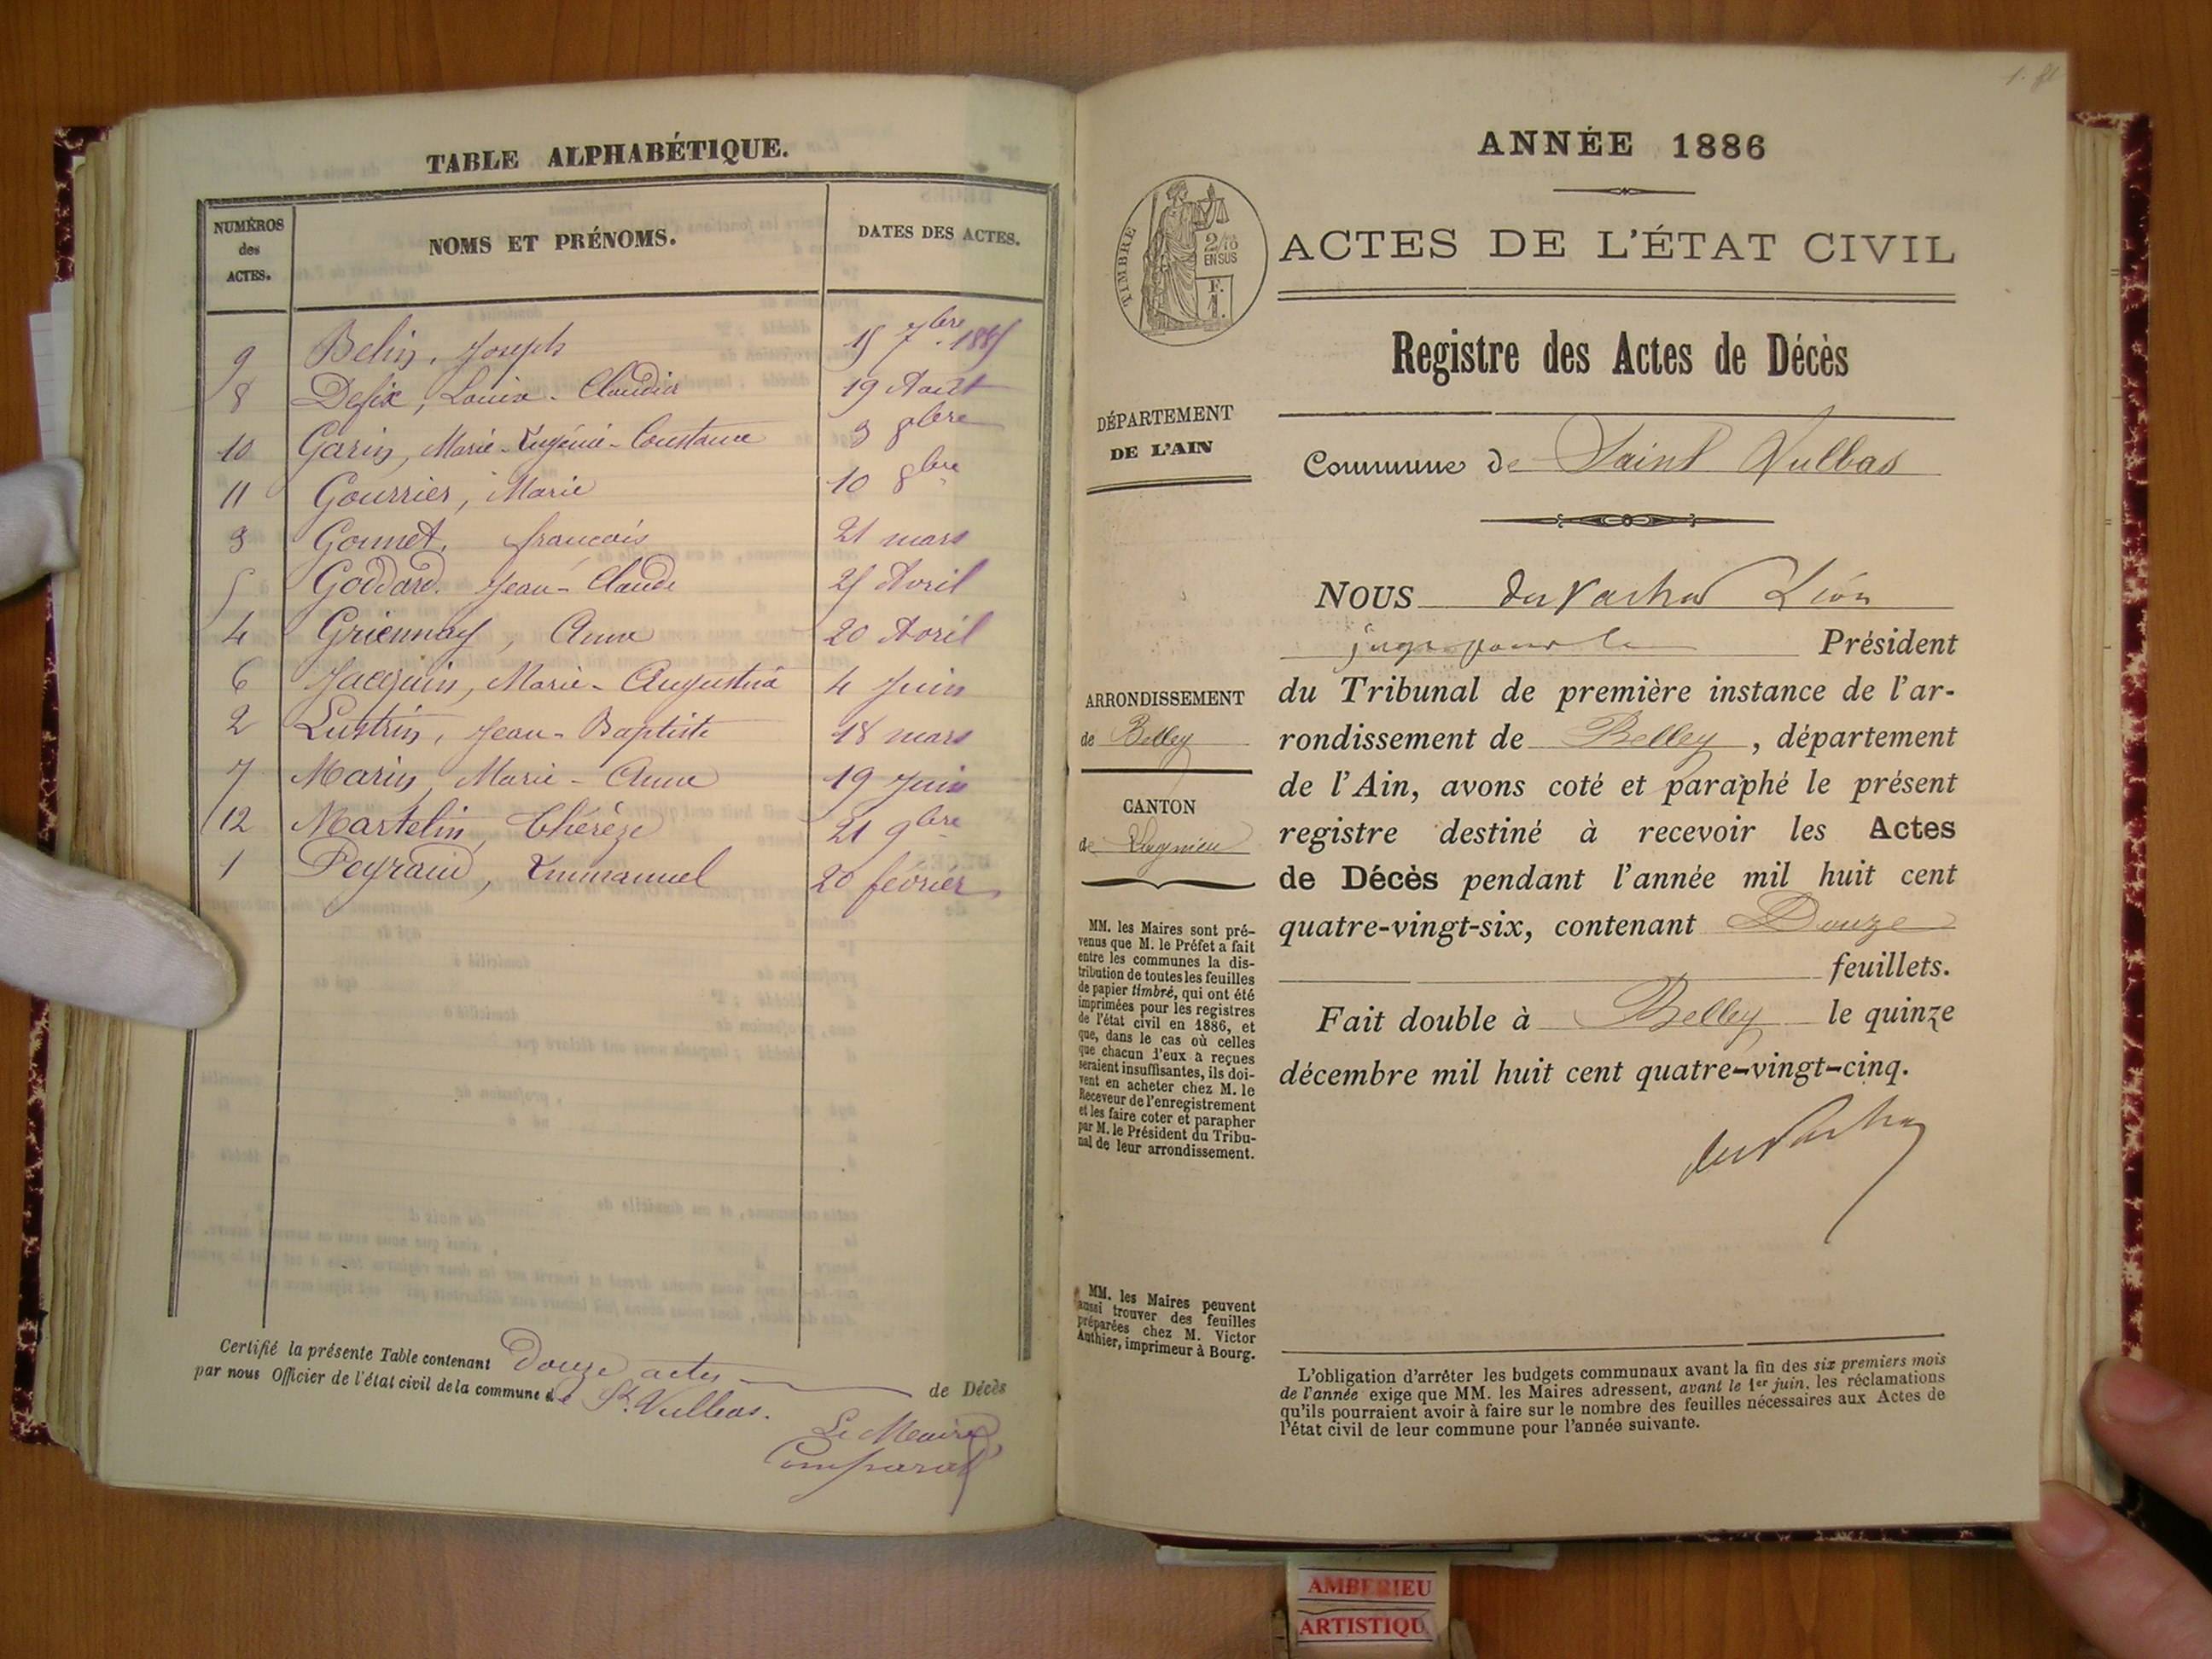 TABLE ALPHABÉTIQUE.
NUMÉROS
des
ACTES.
NOMS ET PRÉNOMS.
DATES DES ACTES.
9 Belin, Joseph 15 7bre 1885
8 Defix, Louise-Claudia 19 Août
10 Garin, Marie-Eugénie-Constance 3 8bre
11 Gourrier, Marie 10 8bre
3 Gonnet, françois 21 mars
5 Goddard, Jean-Claude 25 Avril
4 Griennay, Anne 20 Avril
6 Jacquin, Marie-Augustia 4 Juin
2 Lustrin, Jean-Baptiste 18 mars
7 Marin, Marie-Anne 19 Juin
12 Martelin, Thérèze 21 9bre
1 Peyraud, Emmanuel 20 février
Certifié la présente Table contenant Douze actes de Décès
par nous Officier de l'état civil de la commune de St. Vulbas.
Le Maire
Comparat
ANNÉE 1886
TIMBRE
2/10
EN SUS
F.
1.
ACTES DE L'ÉTAT CIVIL
Registre des Actes de Décès
DÉPARTEMENT
DE L'AIN
Commune de Saint Vulbas
NOUS Léon
juge pour le Président
du Tribunal de première instance de l'ar-
rondissement de Belley, département
de l'Ain, avons coté et paraphé le présent
registre destiné à recevoir les Actes
de Décès pendant l'année mil huit cent
quatre-vingt-six, contenant Douze
feuillets.
Fait double à Belley le quinze
décembre mil huit cent quatre-vingt-cinq.
ARRONDISSEMENT
de Belley
CANTON
de Lagnieu
MM. les Maires sont pré-
venus que M. le Préfet a fait
entre les communes la dis-
tribution de toutes les feuilles
de papier timbré, qui ont été
imprimées pour les registres
de l'état civil en 1886, et
que, dans le cas où celles
que chacun d'eux a reçues
seraient insuffisantes, ils doi-
vent en acheter chez M. le
Receveur de l'enregistrement
et les faire coter et parapher
par M. le Président du Tribu-
nal de leur arrondissement.
MM. les Maires peuvent
aussi trouver des feuilles
préparées chez M. Victor
Authier, imprimeur à Bourg.
L'obligation d'arrêter les budgets communaux avant la fin des six premiers mois
de l'année exige que MM. les Maires adressent, avant le 1er juin, les réclamations
qu'ils pourraient avoir à faire sur le nombre des feuilles nécessaires aux Actes de
l'état civil de leur commune pour l'année suivante.
AMBERIEU
ARTISTIQU